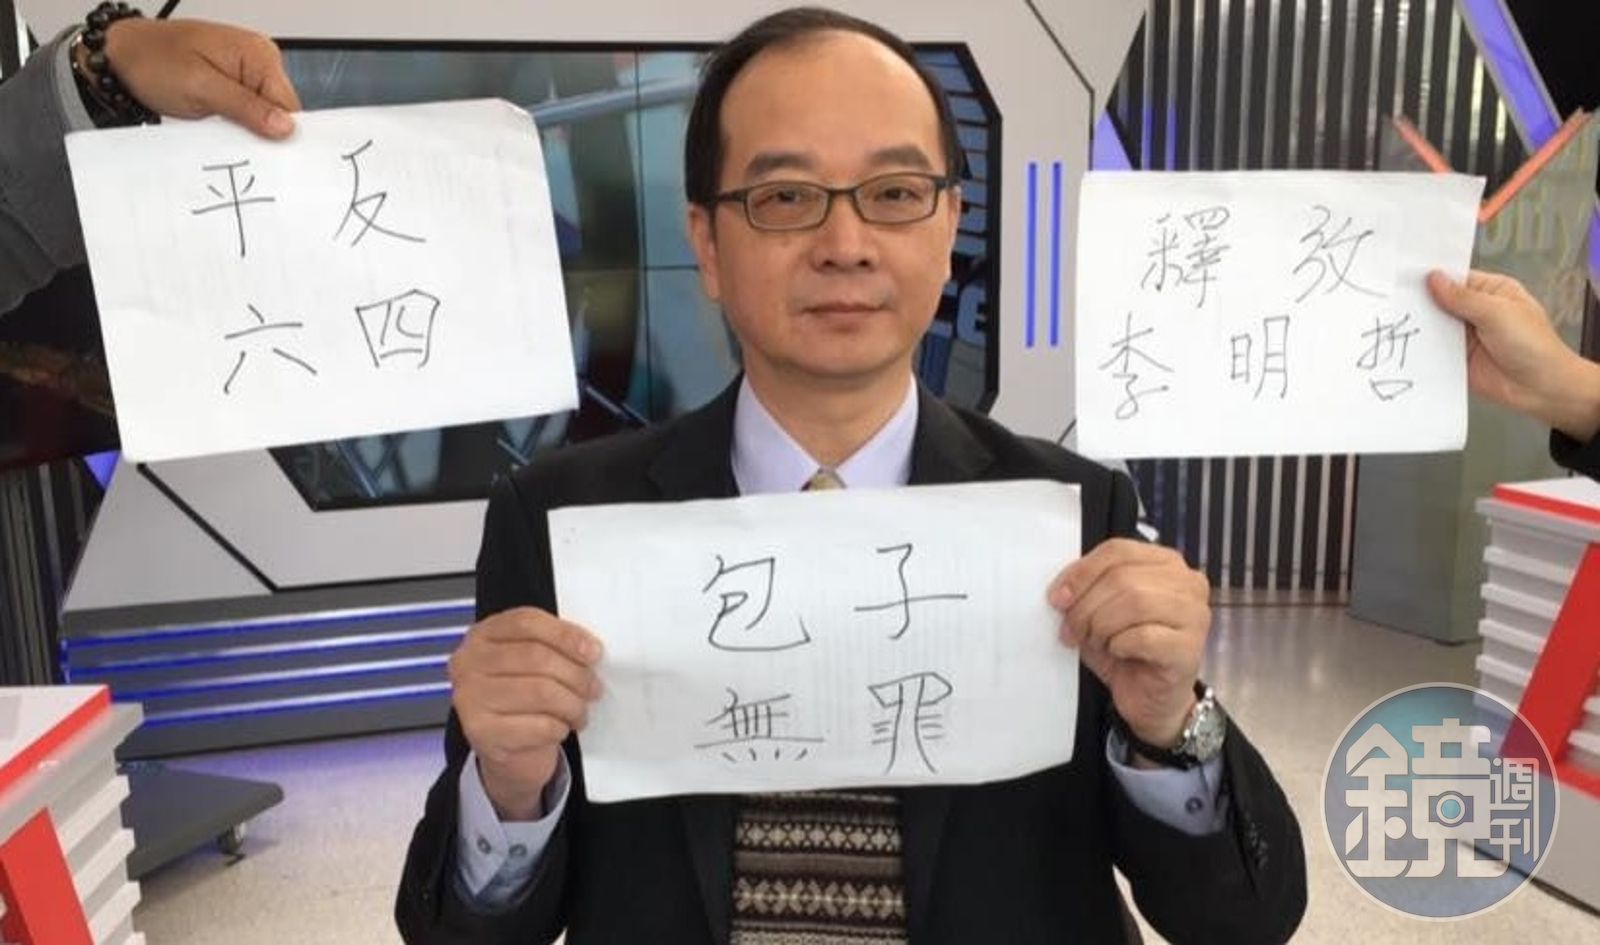 平反
六四
釋放
李明哲
包子
無罪
鏡週刊